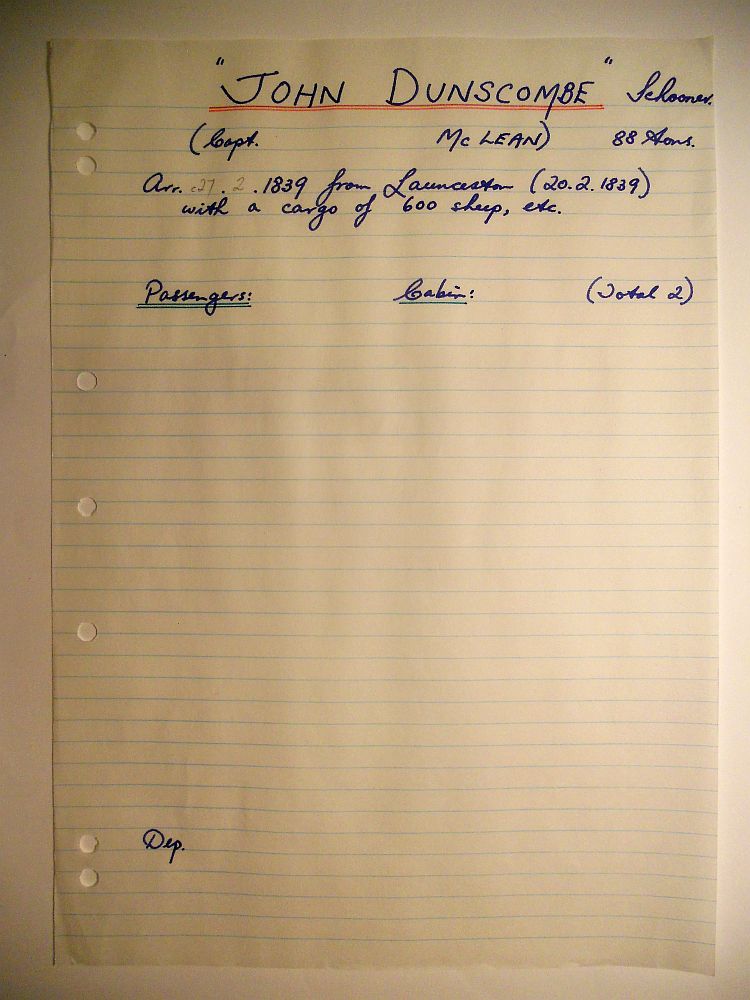 "JOHN DUNSCOMBE" Schooner.
(Capt. McLEAN) 88 tons.
Arr. c27.2.1839 from Launceston (20.2.1839)
with a cargo of 600 sheep, etc.
Passengers: Cabin: (Total 2)
Dep.